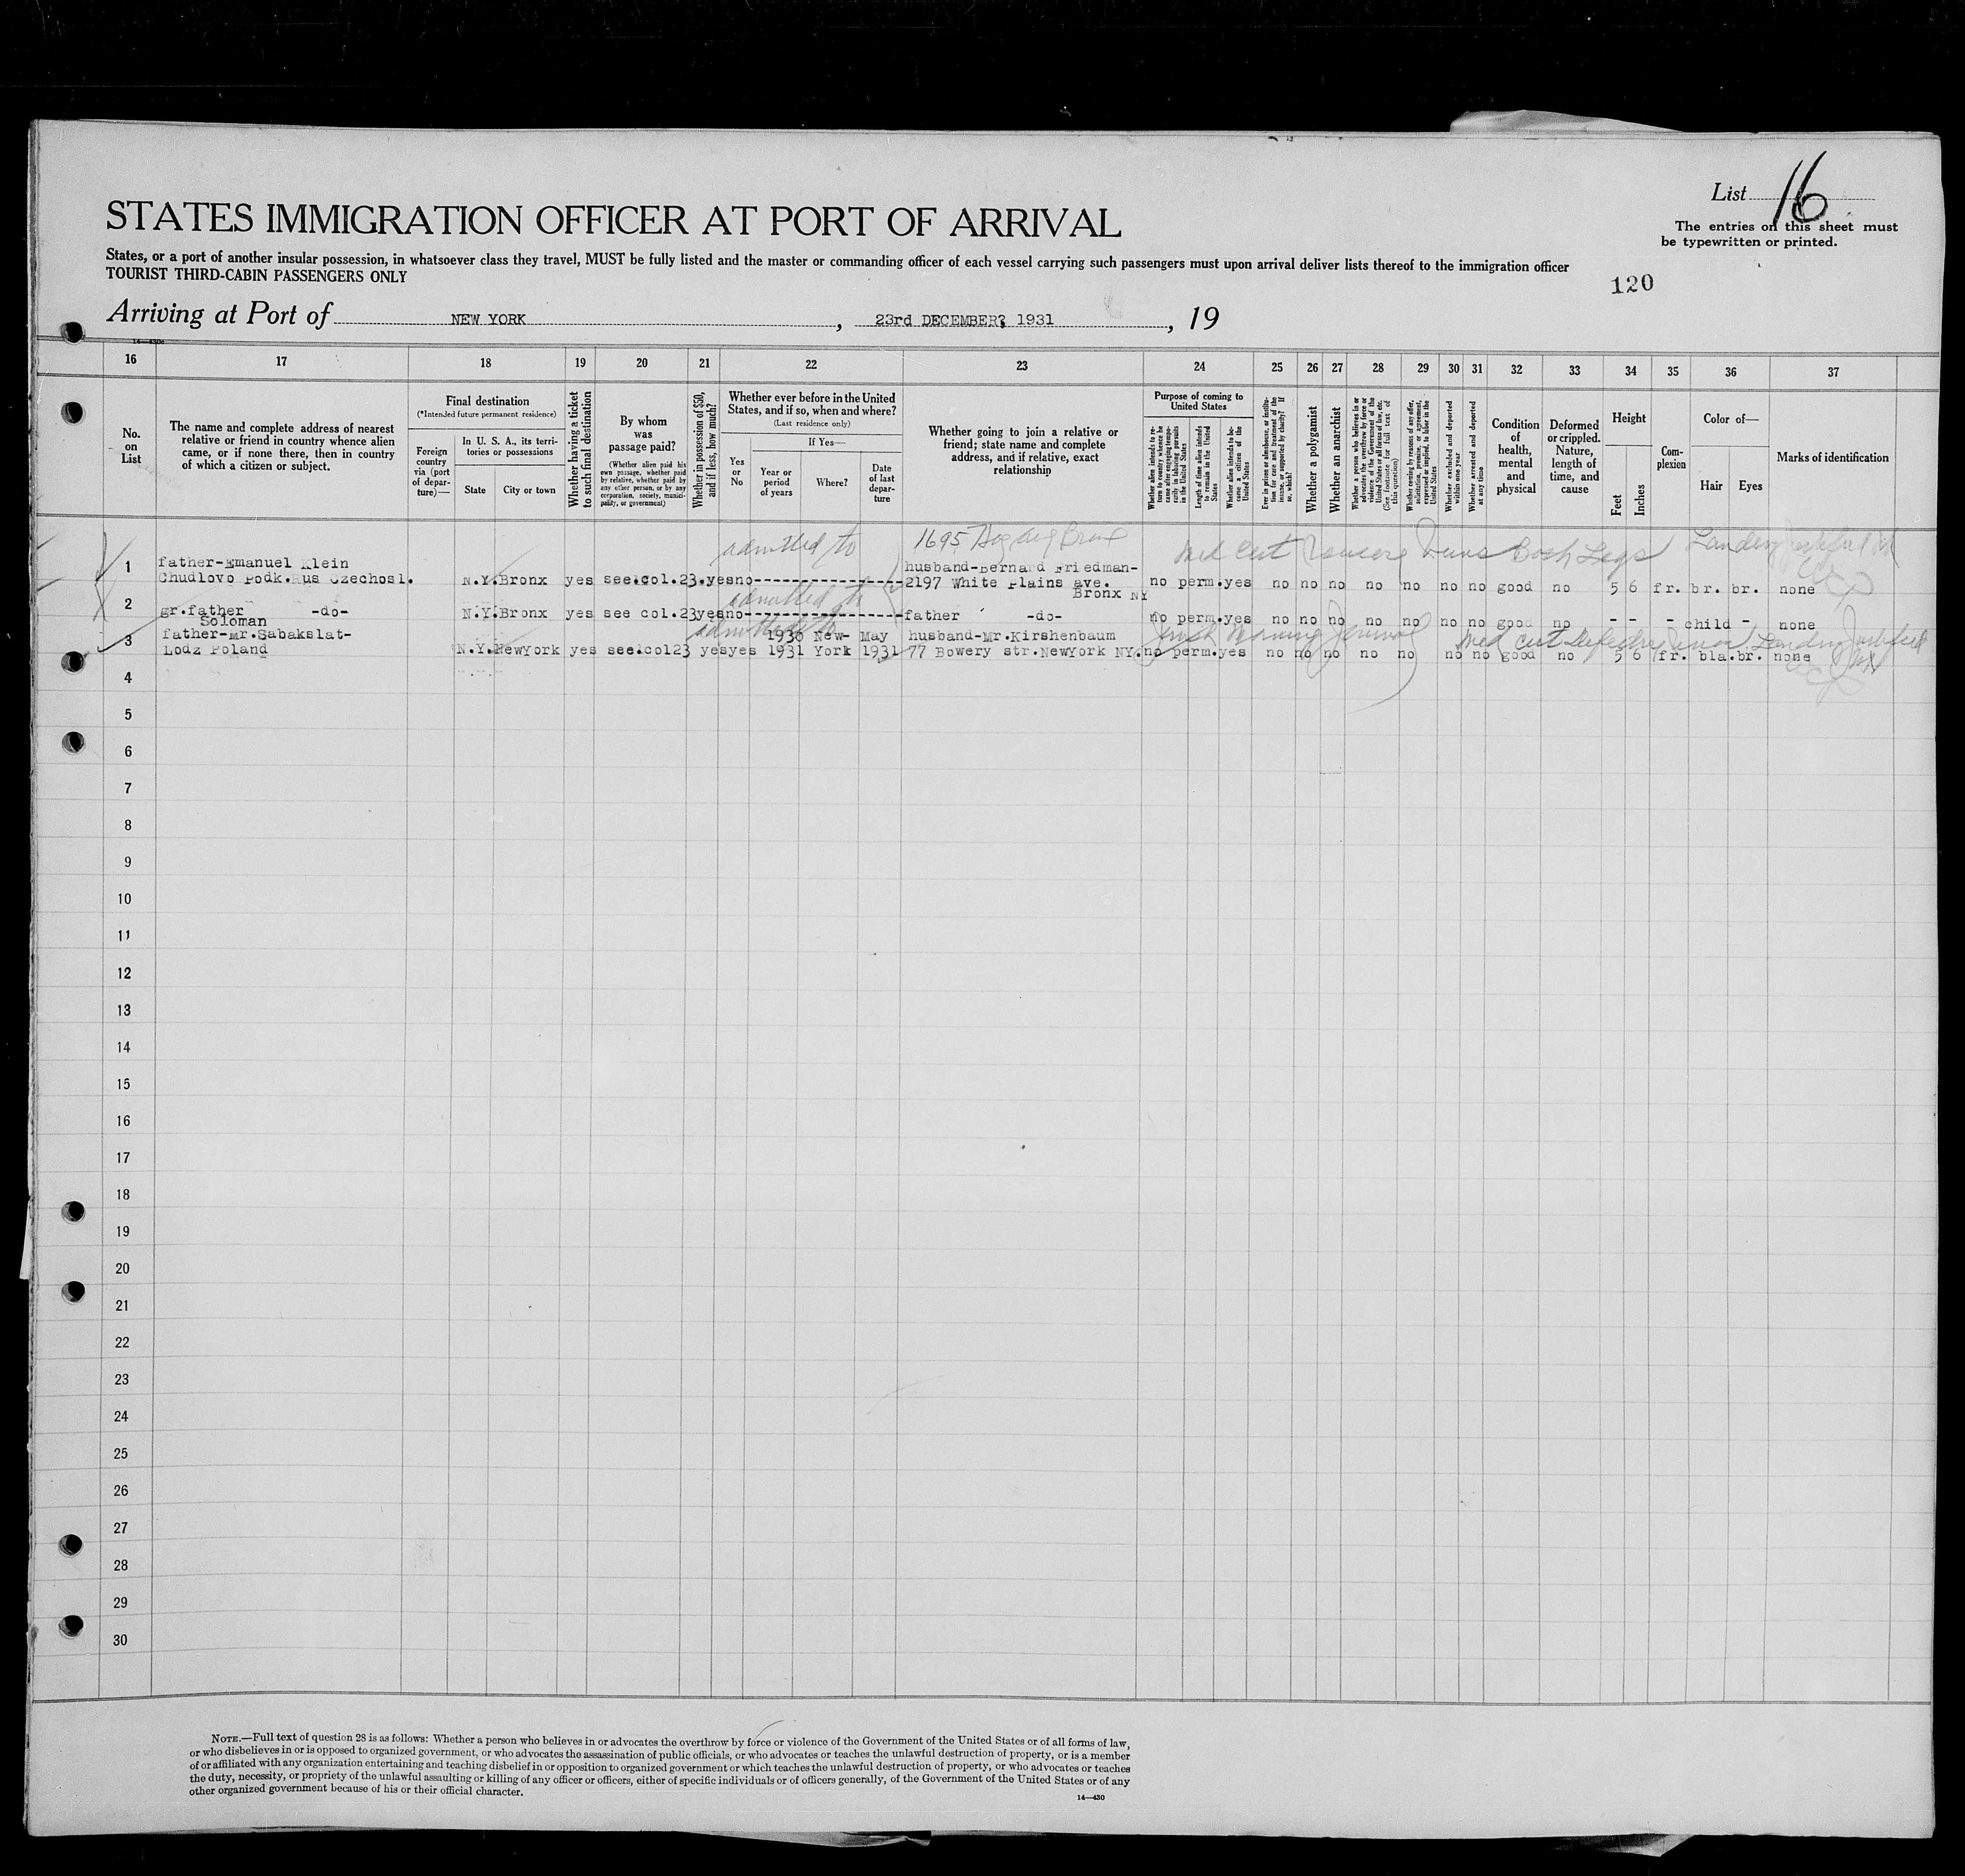 List 16
The entries on this sheet must
be typewritten or printed.
STATES IMMIGRATION OFFICER AT PORT OF ARRIVAL
States, or a port of another insular possession, in whatsoever class they travel, MUST be fully listed and the master or commanding officer of each vessel carrying such passengers must upon arrival deliver lists thereof to the immigration officer
TOURIST THIRD-CABIN PASSENGERS ONLY
120
Arriving at Port of NEW YORK, 23rd DECEMBER? 1931, 19
14—430c
16 17 18 19 20 21 22 23 24 25 26 27 28 29 30 31 32 33 34 35 36 37
No.
on
List
The name and complete address of nearest
relative or friend in country whence alien
came, or if none there, then in country
of which a citizen or subject.
Final destination
(*Intended future permanent residence)
Foreign
country
via (port
of depar-
ture)—
In U. S. A., its terri-
tories or possessions
State
City or town
Whether having a ticket
to such final destination
By whom
was
passage paid?
(Whether alien paid his
own passage, whether paid
by relative, whether paid by
any other person, or by any
corporation, society, munici-
pality, or government)
Whether in possession of $50,
and if less, how much?
Whether ever before in the United
States, and if so, when and where?
(Last residence only)
Yes
or
No
If Yes—
Year or
period
of years
Where?
Date
of last
depar-
ture
Whether going to join a relative or
friend; state name and complete
address, and if relative, exact
relationship
Purpose of coming to
United States
Whether alien intends to re-
turn to country whence he
came after engaging tempo-
rarily in laboring pursuits
in the United States
Length of time alien intends
to remain in the United
States
Whether alien intends to be-
come a citizen of the
United States
Ever in prison or almshouse, or institu-
tion for care and treatment of the
insane, or supported by charity? If
so, which?
Whether a polygamist
Whether an anarchist
Whether a person who believes in or
advocates the overthrow by force or
violence of the Government of the
United States or all forms of law, etc.
(See footnote for full text of
this question)
Whether coming by reasons of any offer,
solicitation, promise, or agreement,
expressed or implied, to labor in the
United States
Whether excluded and deported
within one year
Whether arrested and deported
at any time
Condition
of
health,
mental
and
physical
Deformed
or crippled.
Nature,
length of
time, and
cause
Height
Feet
Inches
Com-
plexion
Color of—
Hair
Eyes
Marks of identification
admitted to 1695 Bronx Med Cert Both Legs Landing
1 father-Emanuel Klein husband-Bernard Friedman-
Chudlovo Podk.Rus Czechosl. N.Y. Bronx yes see.col.23.yes no----------------- 2197 White Plains ave. no perm.yes no no no no no no no good no 5 6 fr. br. br. none
Bronx NY
admitted to
2 gr.father -do- N.Y. Bronx yes see col.23 yes no----------------- father -do- no perm.yes no no no no no no no good no - - - child - none
Soloman
admitted to Morning Journal Med cert Landing
3 father-Mr.Sabakslat- 1930 New- May husband-Mr.Kirshenbaum
Lodz Poland N.Y. NewYork yes see.col23 yes yes 1931 York 1931 77 Bowery str.NewYork NY. no perm.yes no no no no no no no good no 5 6 fr. bla.br. none
4
5
6
7
8
9
10
11
12
13
14
15
16
17
18
19
20
21
22
23
24
25
26
27
28
29
30
NOTE.—Full text of question 28 is as follows: Whether a person who believes in or advocates the overthrow by force or violence of the Government of the United States or of all forms of law,
or who disbelieves in or is opposed to organized government, or who advocates the assassination of public officials, or who advocates or teaches the unlawful destruction of property, or is a member
of or affiliated with any organization entertaining and teaching disbelief in or opposition to organized government or which teaches the unlawful destruction of property, or who advocates or teaches
the duty, necessity, or propriety of the unlawful assaulting or killing of any officer or officers, either of specific individuals or of officers generally, of the Government of the United States or of any
other organized government because of his or their official character.
14—430